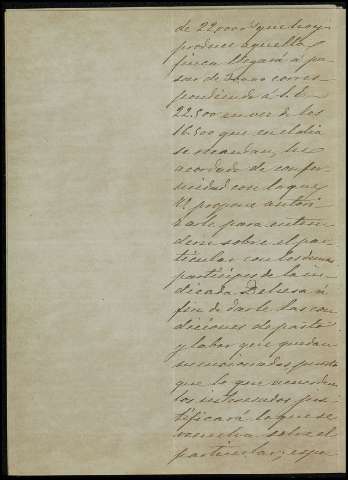 de 22000 rs que hoy
produce aquella
finca llegará á pa-
sar de 30000 corres-
pondiendo á S. E.
22.500 en vez de los
16.500 que en el dia
se recaudan, he
acordado de confor-
midad con lo que
V. propone autori-
zarle para enten-
derse sobre el par-
ticular con los demas
participes de la in-
dicada Dehesa á
fin de darle las con-
diciones de pasto
y labor que quedan
mencionadas, puesto
que lo que acuerden
los interesados jus-
tificará lo que se
resuelva sobre el
particular; espe-